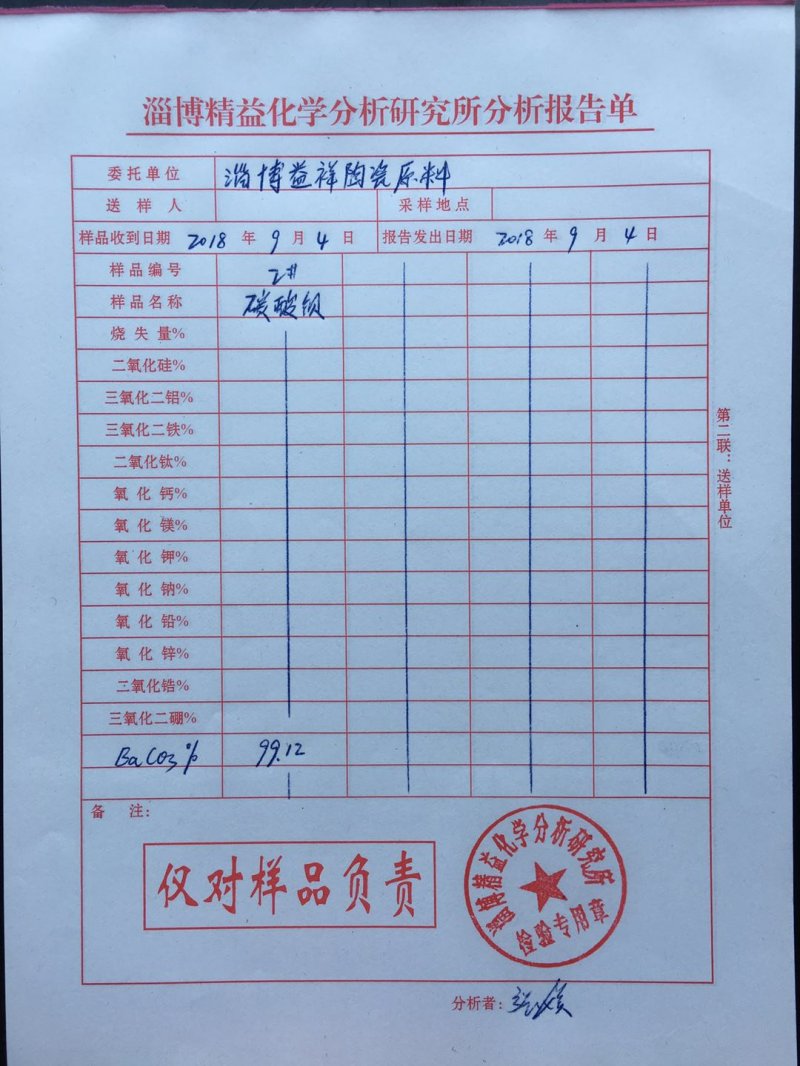 淄博精益化学分析研究所分析报告单
委托单位 淄博益祥陶瓷原料
送样人 采样地点
样品收到日期 2018 年 9 月 4 日 报告发出日期 2018 年 9 月 4 日
样品编号 2#
样品名称 碳酸钡
烧失量%
二氧化硅%
三氧化二铝%
三氧化二铁%
二氧化钛%
氧化钙%
氧化镁%
氧化钾%
氧化钠%
氧化铅%
氧化锌%
二氧化锆%
三氧化二硼%
BaCO3% 99.12
备注:
仅对样品负责
淄博精益化学分析研究所
检验专用章
分析者:
第二联:送样单位